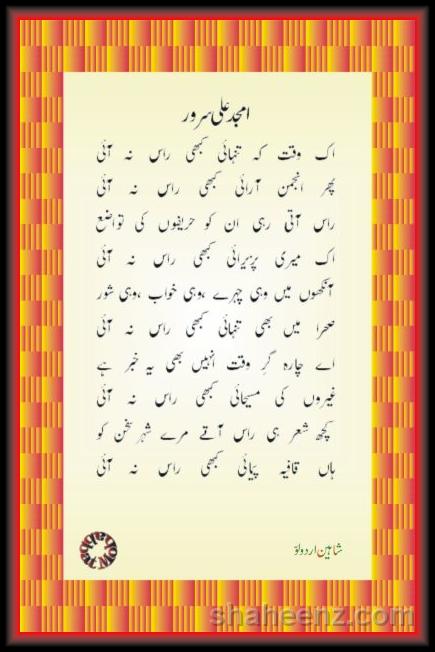 امجد علی سرور
اک وقت کہ تنہائی کبھی راس نہ آئی
پھر انجمن آرائی کبھی راس نہ آئی
راس آتی رہی ان کو حریفوں کی تواضع
اک میری پزیرائی کبھی راس نہ آئی
آنکھوں میں وہی چہرے ،وہی خواب ،وہی شور
صحرا میں بھی تنہائی کبھی راس نہ آئی
اے چارہ گرِ وقت انہیں بھی یہ خبر ہے
غیروں کی مسیحائی کبھی راس نہ آئی
کچھ شعر ہی راس آتے مرے شہر سخن کو
ہاں قافیہ پیمائی کبھی راس نہ آئی
شاہین اردو لوّ
shaheenz.com